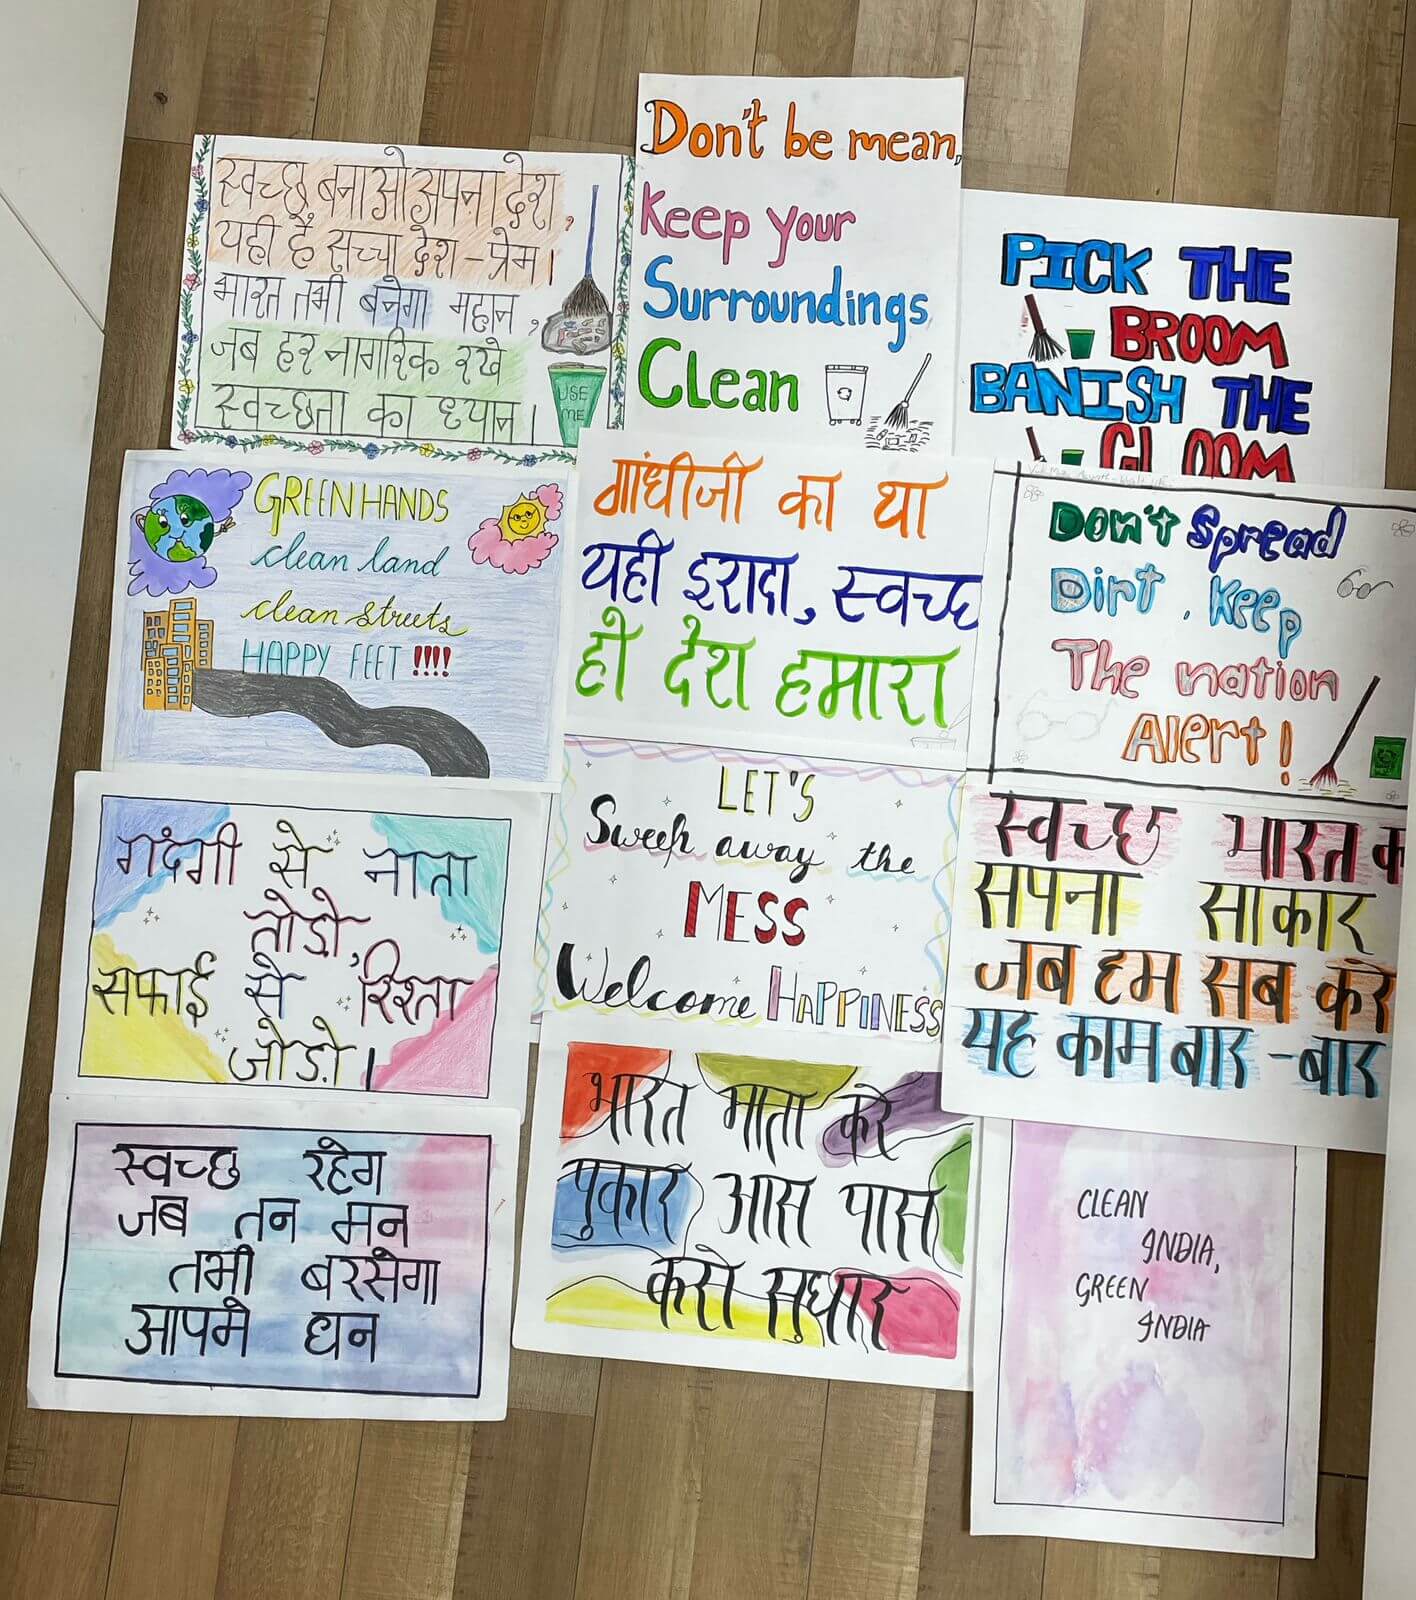 स्वच्छ बनाओ अपना देश,
यही हैं सच्चा देश-प्रेम।
भारत तभी बनेगा महान,
जब हर नागरिक रखे
स्वच्छता का ध्यान।
USE
ME
Don't be mean,
Keep your
Surroundings
Clean
PICK THE
BROOM
BANISH THE
GLOOM
GREEN HANDS
clean land
clean streets
HAPPY FEET !!!!
गांधीजी का था
यही इरादा, स्वच्छ
हो देश हमारा
Don't Spread
Dirt, Keep
The nation
Alert!
गदंगी से नाता
तोडो,
सफाई से रिश्ता
जोडो़।
LET'S
Sweep away the
MESS
Welcome HAPPINESS
स्वच्छ भारत क
सपना साकार
जब हम सब करे
यह काम बार-बार
स्वच्छ रहेग
जब तन मन
तभी बरसेगा
आपमे धन
भारत माता करे
पुकार आस पास
करो सुधार
CLEAN
INDIA,
GREEN
INDIA